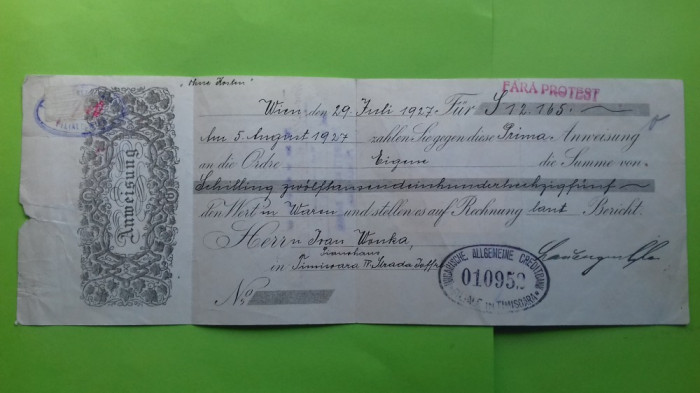 „Ohne Kosten“
FĂRĂ PROTEST
Wien, den 29. Juli 1927. Für S 12.165.-
Am 5. August 1927 zahlen Sie gegen diese Prima-Anweisung
an die Ordre Eigene die Summe von
Schilling zwölftausendeinhundertsechzigfünf
den Wert in Waren und stellen es auf Rechnung laut Bericht.
Herrn Ivan Wonka,
Pianohaus
in Timisoara IV Strada Joffre
No
Anweisung
UNGARISCHE ALLGEMEINE CREDITBANK
010952
FILIALE IN TIMIŞOARA